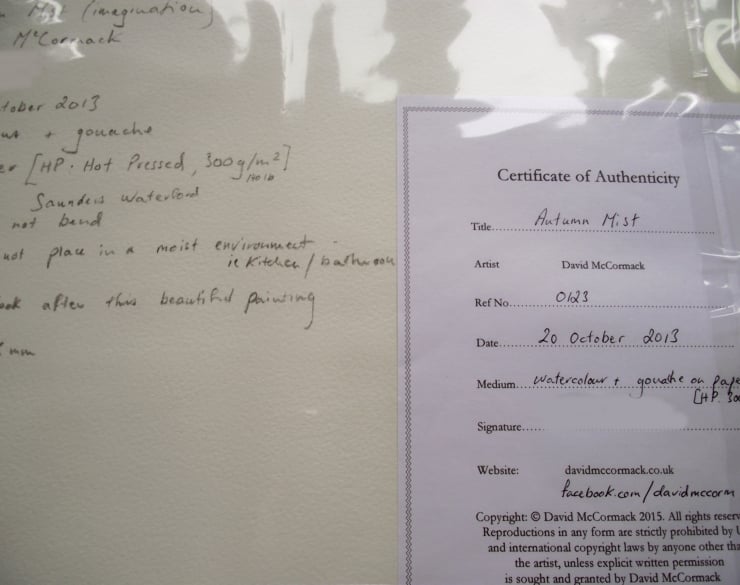 Mist (imagination)
McCormack
tober 2013
+ gouache
[HP. Hot Pressed, 300g/m²]
140 lb
Saunders Waterford
not bend
not place in a moist environment
ie Kitchen / bathroom
ook after this beautiful painting
mm
Certificate of Authenticity
Title.... Autumn Mist
Artist David McCormack
Ref No.... 0123
Date.... 20 October 2013
Medium.... Watercolour + gouache on pape
[HP. 300
Signature.....
Website: davidmccormack.co.uk
facebook.com/davidmccorm
Copyright: © David McCormack 2015. All rights reserv
Reproductions in any form are strictly prohibited by U
and international copyright laws by anyone other tha
the artist, unless explicit written permission
is sought and granted by David McCormack